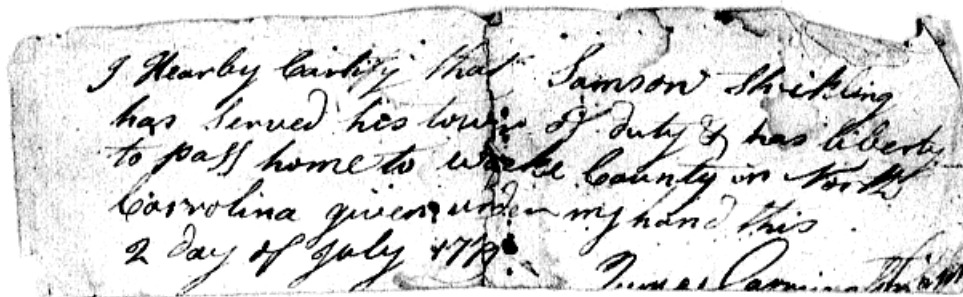 I Hearby Cartify that Samson Shickling
has Served his tower of duty & has liberty
to pass home to Wacke County in North
Carrolina given under my hand this
2 day of July 1779
James